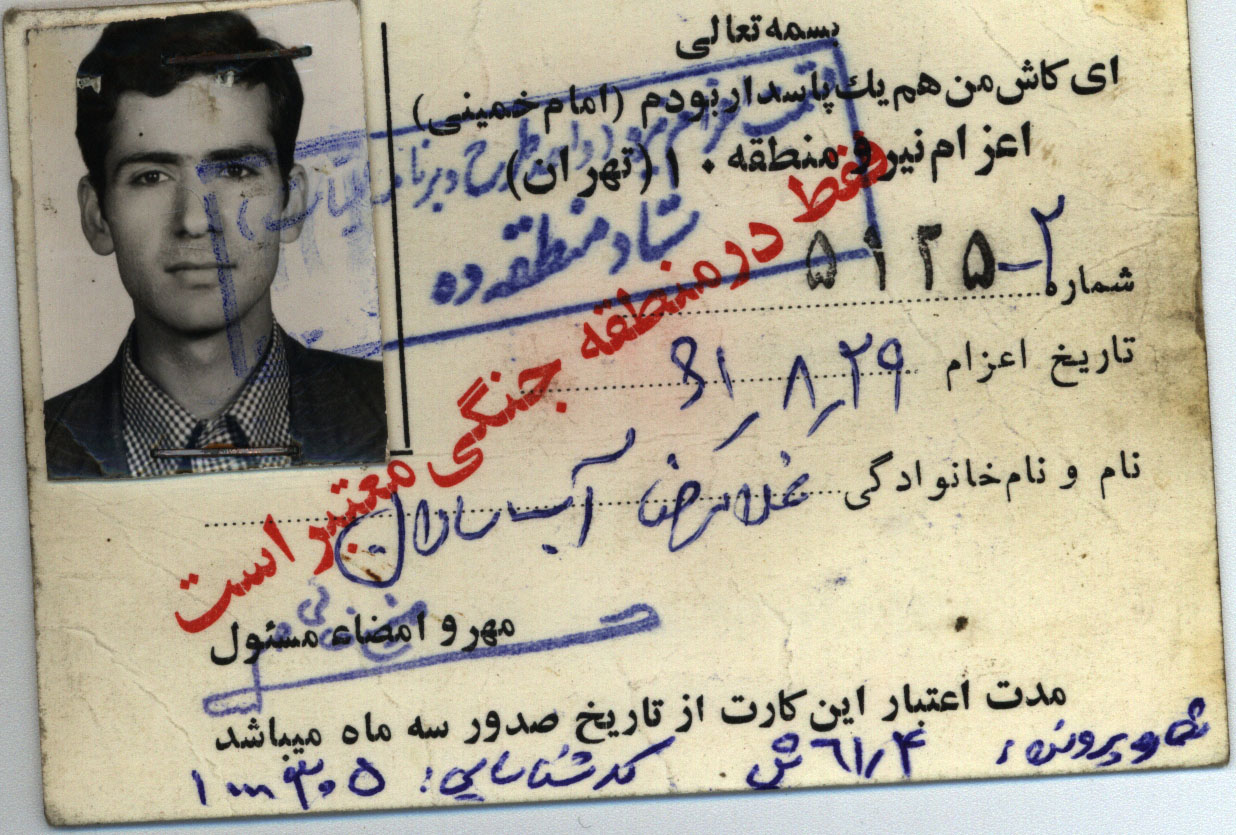 بسمه تعالی
ای کاش من هم یك پاسدار بودم (امام خمینی)
اعزام نیرو منطقه ۱۰ (تهران)
ستاد منطقه ده
شماره ۵۱۲۵-۲
فقط در منطقه جنگی معتبر است
تاریخ اعزام ۶۱ ۸ ۲۹
نام و نام خانوادگی غلامرضا آب سالان
مهر و امضاء مسئول
مدت اعتبار این کارت از تاریخ صدور سه ماه میباشد
شماره پرونده: ۶۱٫۴ ش کد شناسایی: